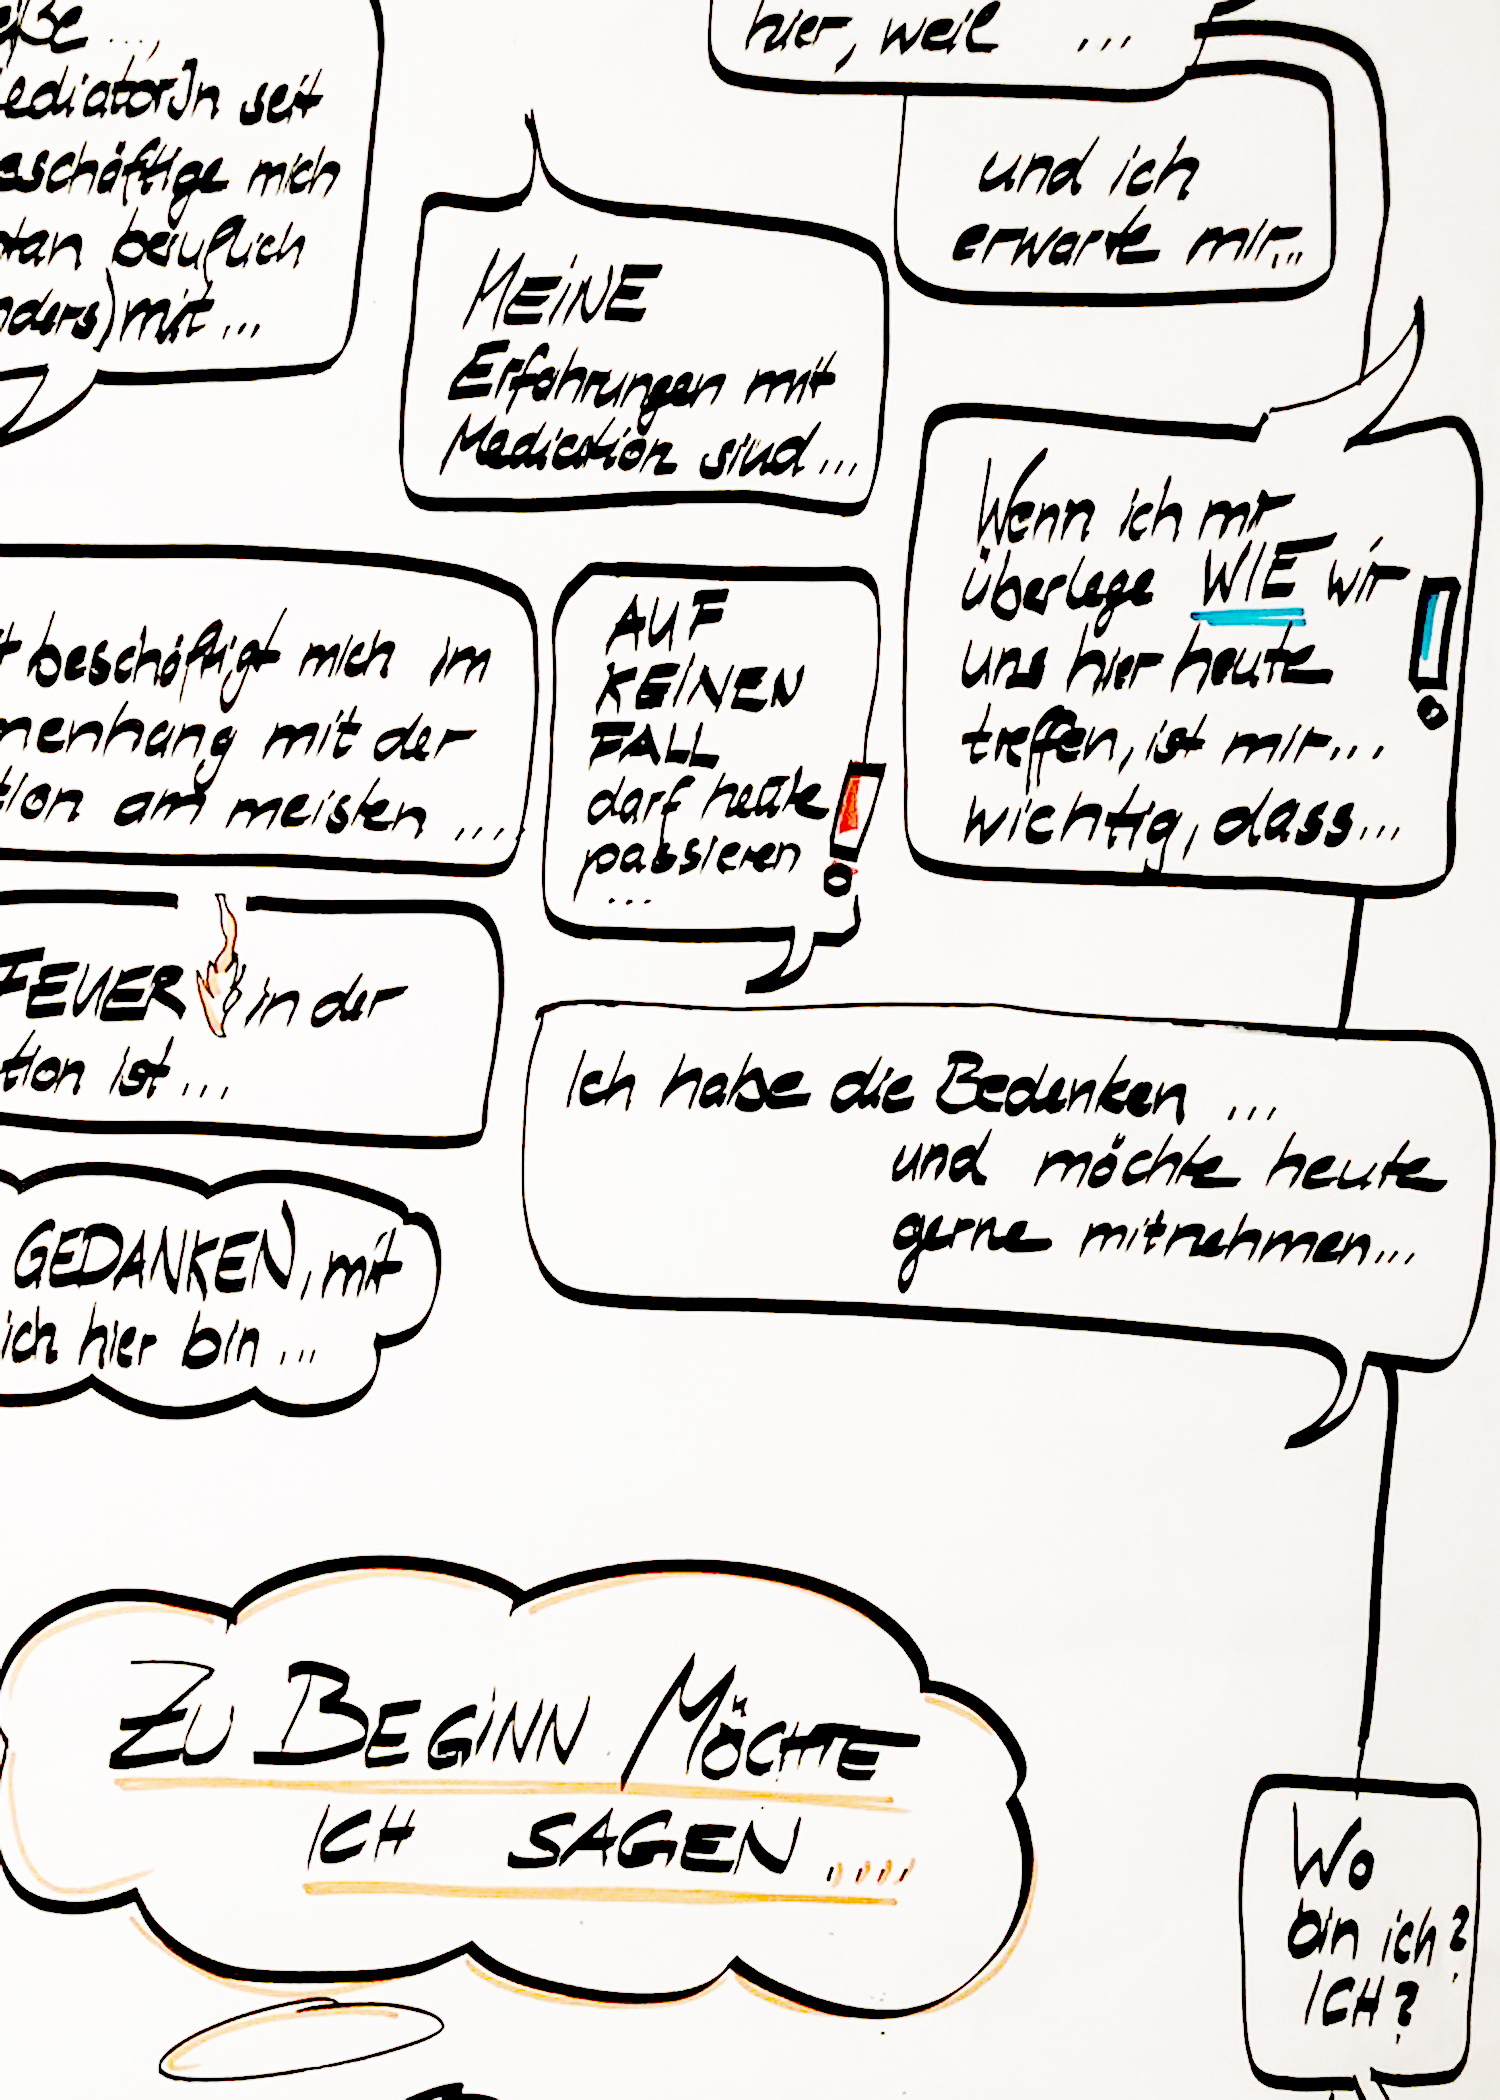 hier, weil ...
ediatorIn seit
eschäftige mich
beruflich
nders) mit ...
und ich
erwarte mir...
MEINE
Erfahrungen mit
Mediation sind ...
Wenn ich mir
überlege WIE wir
uns hier heute
treffen, ist mir...
wichtig, dass...
t beschäftigt mich im
menhang mit der
tion am meisten ...
AUF
KEINEN
FALL
darf heute
passieren
...
FEUER in der
tion ist ...
Ich habe die Bedenken ...
und möchte heute
gerne mitnehmen...
GEDANKEN, mit
ich hier bin ...
ZU BEGINN MÖCHTE
ICH SAGEN ....
Wo
bin ich?
ICH?